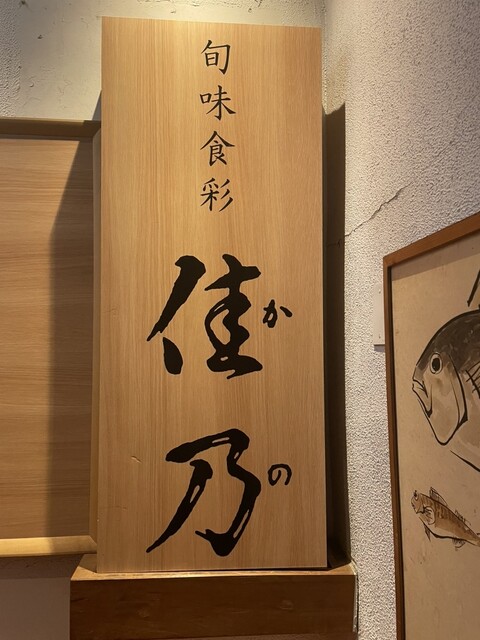 旬味食彩
佳乃
かの